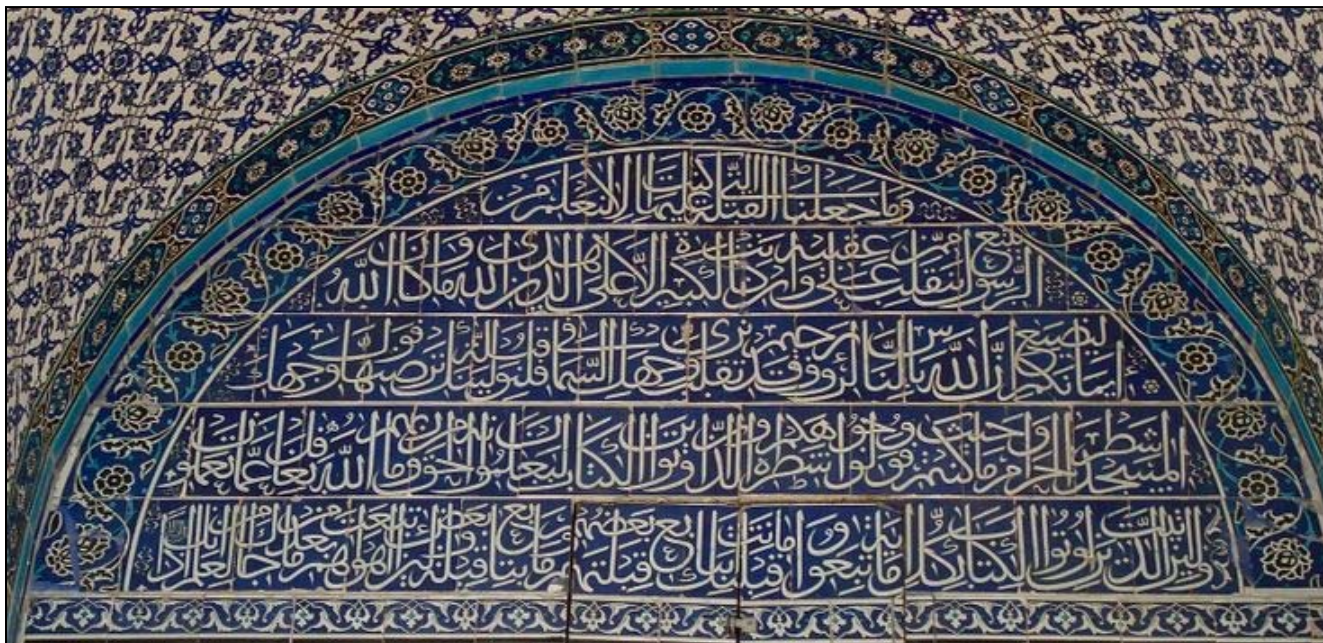 وما جعلنا القبلة التي كنت عليها إلا لنعلم من
يتبع الرسول ممن ينقلب على عقبيه وإن كانت لكبيرة إلا على الذين هدى الله وما كان الله
ليضيع إيمانكم إن الله بالناس لرؤف رحيم قد نرى تقلب وجهك في السماء فلنولينك قبلة ترضيها فول وجهك
شطر المسجد الحرام وحيث ما كنتم فولوا وجوهكم شطره وإن الذين أوتوا الكتاب ليعلمون أنه الحق من ربهم وما الله بغافل عما يعملون
ولئن أتيت الذين أوتوا الكتاب بكل آية ما تبعوا قبلتك وما أنت بتابع قبلتهم وما بعضهم بتابع قبلة بعض ولئن اتبعت أهواءهم من بعد ما جاءك من العلم إنك إذا